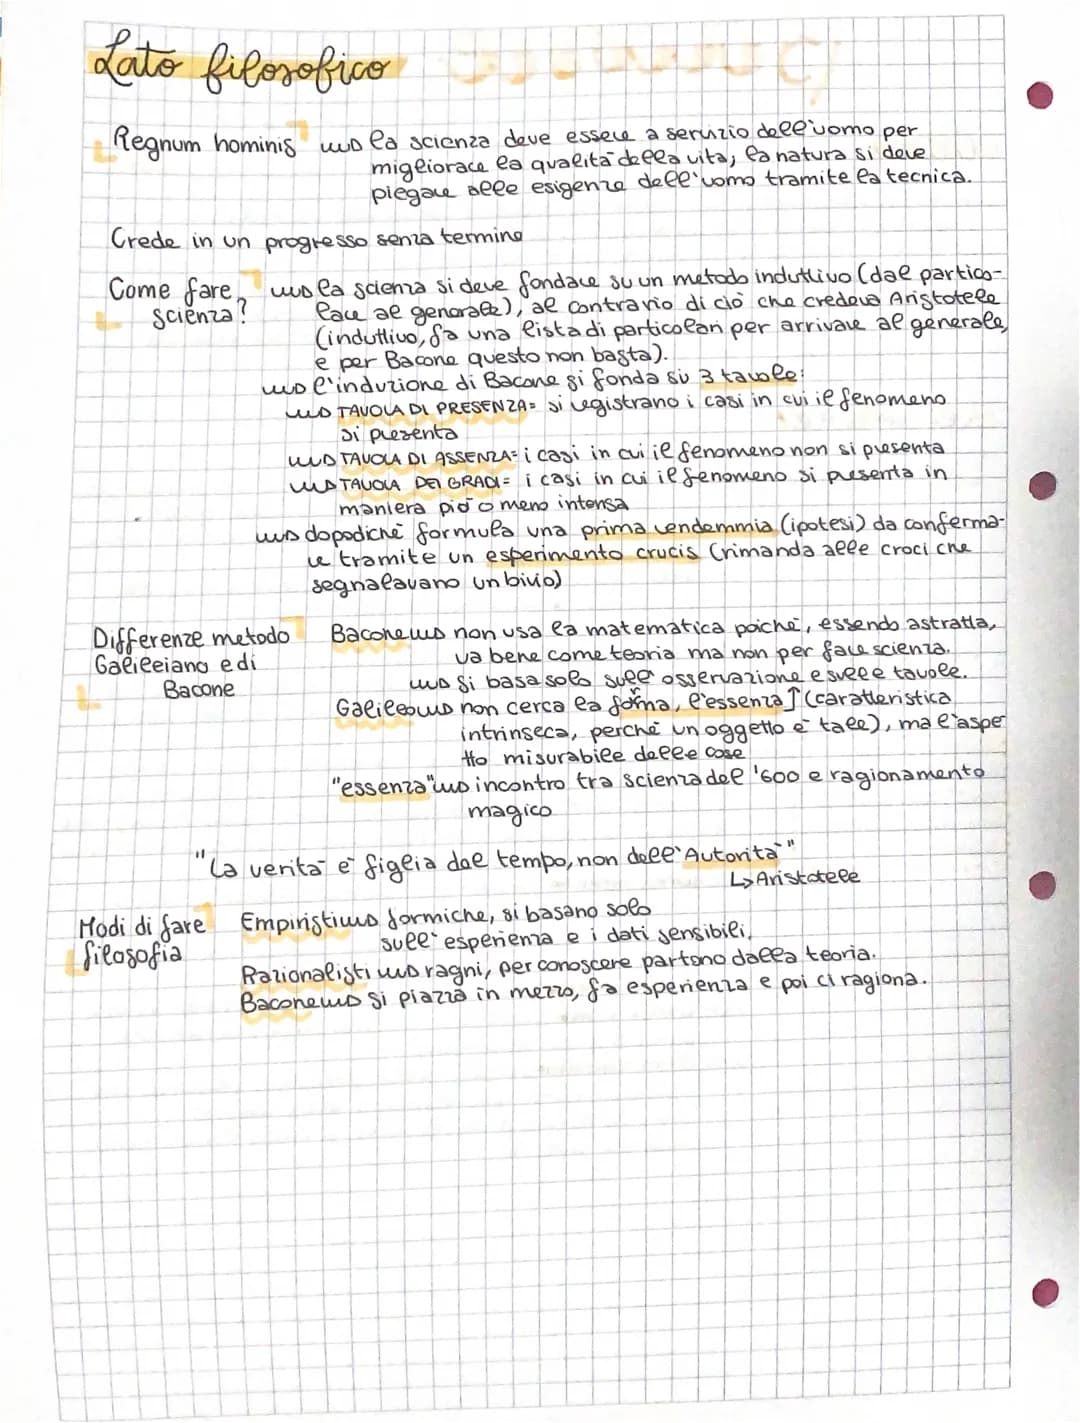 Lato filosofico
Regnum hominis ⟿ la scienza deve essere a servizio dell'uomo per
migliorare la qualità della vita, la natura si deve
piegare alle esigenze dell'uomo tramite la tecnica.
Crede in un progresso senza termine
Come fare ⟿ la scienza si deve fondare su un metodo induttivo (dal partico-
scienza? lare al generale), al contrario di ciò che credeva Aristotele
(induttivo, fa una lista di particolari per arrivare al generale,
e per Bacone questo non basta).
⟿ l'induzione di Bacone si fonda su 3 tavole:
⟿ TAVOLA DI PRESENZA= si registrano i casi in cui il fenomeno
si presenta
⟿ TAVOLA DI ASSENZA= i casi in cui il fenomeno non si presenta
⟿ TAVOLA DEI GRADI= i casi in cui il fenomeno si presenta in
maniera più o meno intensa
⟿ dopodiché formula una prima vendemmia (ipotesi) da conferma-
re tramite un esperimento crucis (rimanda alle croci che
segnalavano un bivio)
Differenze metodo Bacone ⟿ non usa la matematica poiché, essendo astratta,
Galileiano e di va bene come teoria ma non per fare scienza.
Bacone ⟿ si basa solo sull'osservazione e sulle tavole.
Galileo ⟿ non cerca la forma, l'essenza ↑ (caratteristica
intrinseca, perché un oggetto è tale), ma l'aspe
tto misurabile delle cose
"essenza" ⟿ incontro tra scienza del '600 e ragionamento
magico
"La verità è figlia del tempo, non dell'Autorità"
↳ Aristotele
Modi di fare Empiristi ⟿ formiche, si basano solo
filosofia sull'esperienza e i dati sensibili,
Razionalisti ⟿ ragni, per conoscere partono dalla teoria.
Bacone ⟿ si piazza in mezzo, fa esperienza e poi ci ragiona.